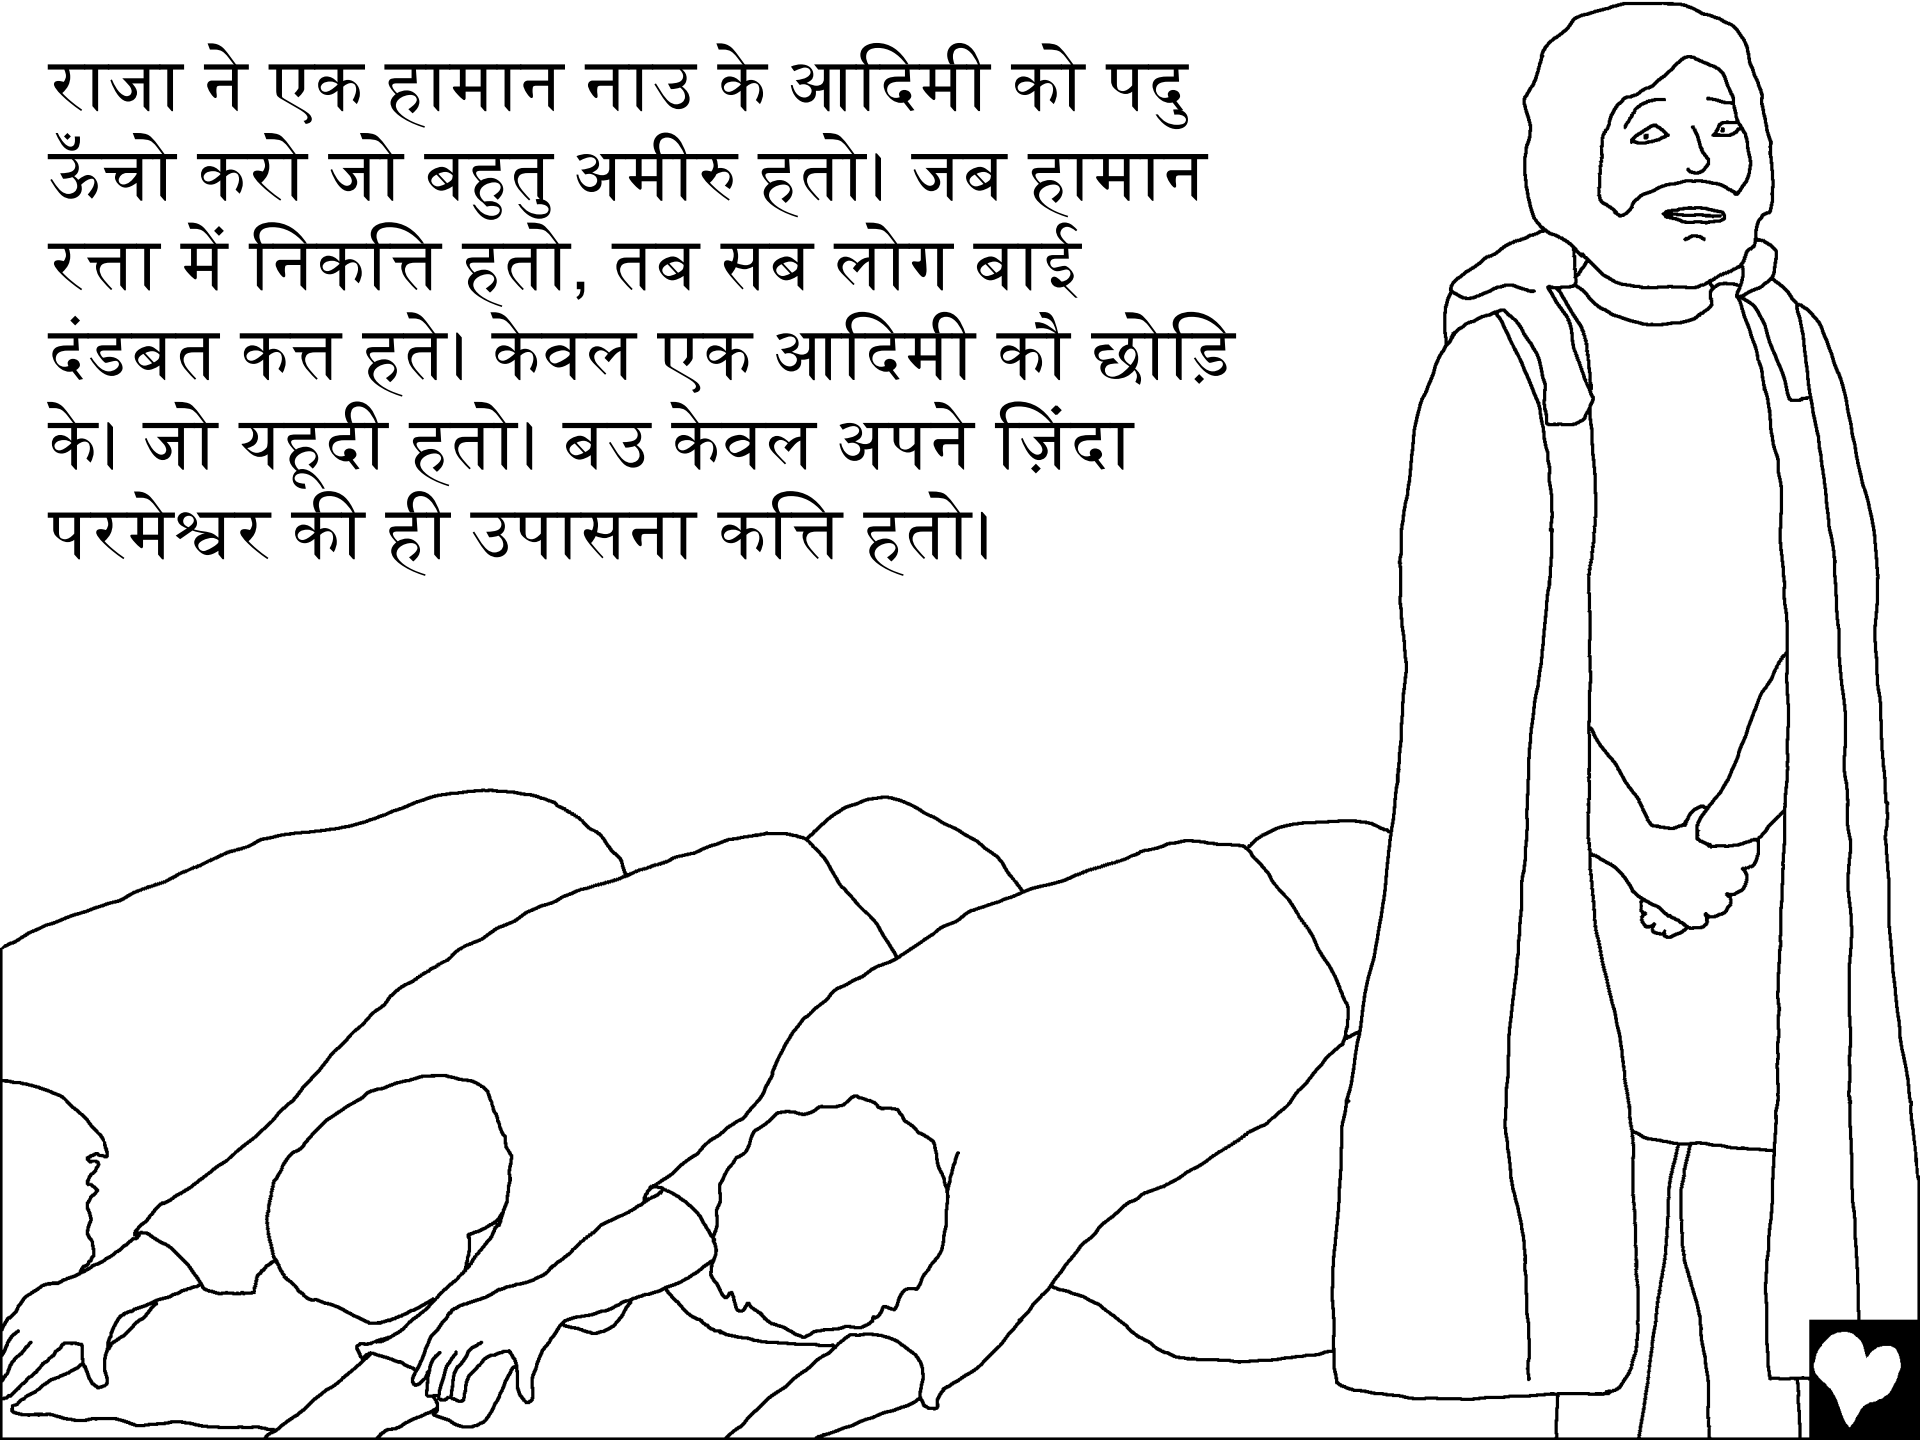 राजा ने एक हामान नाउ के आदिमी को पदु
ऊँचो करो जो बहुतु अमीरु हतो। जब हामान
रत्ता में निकत्ति हतो, तब सब लोग बाई
दंडबत कत्त हते। केवल एक आदिमी कौ छोड़ि
के। जो यहूदी हतो। बउ केवल अपने ज़िंदा
परमेश्वर की ही उपासना कत्ति हतो।